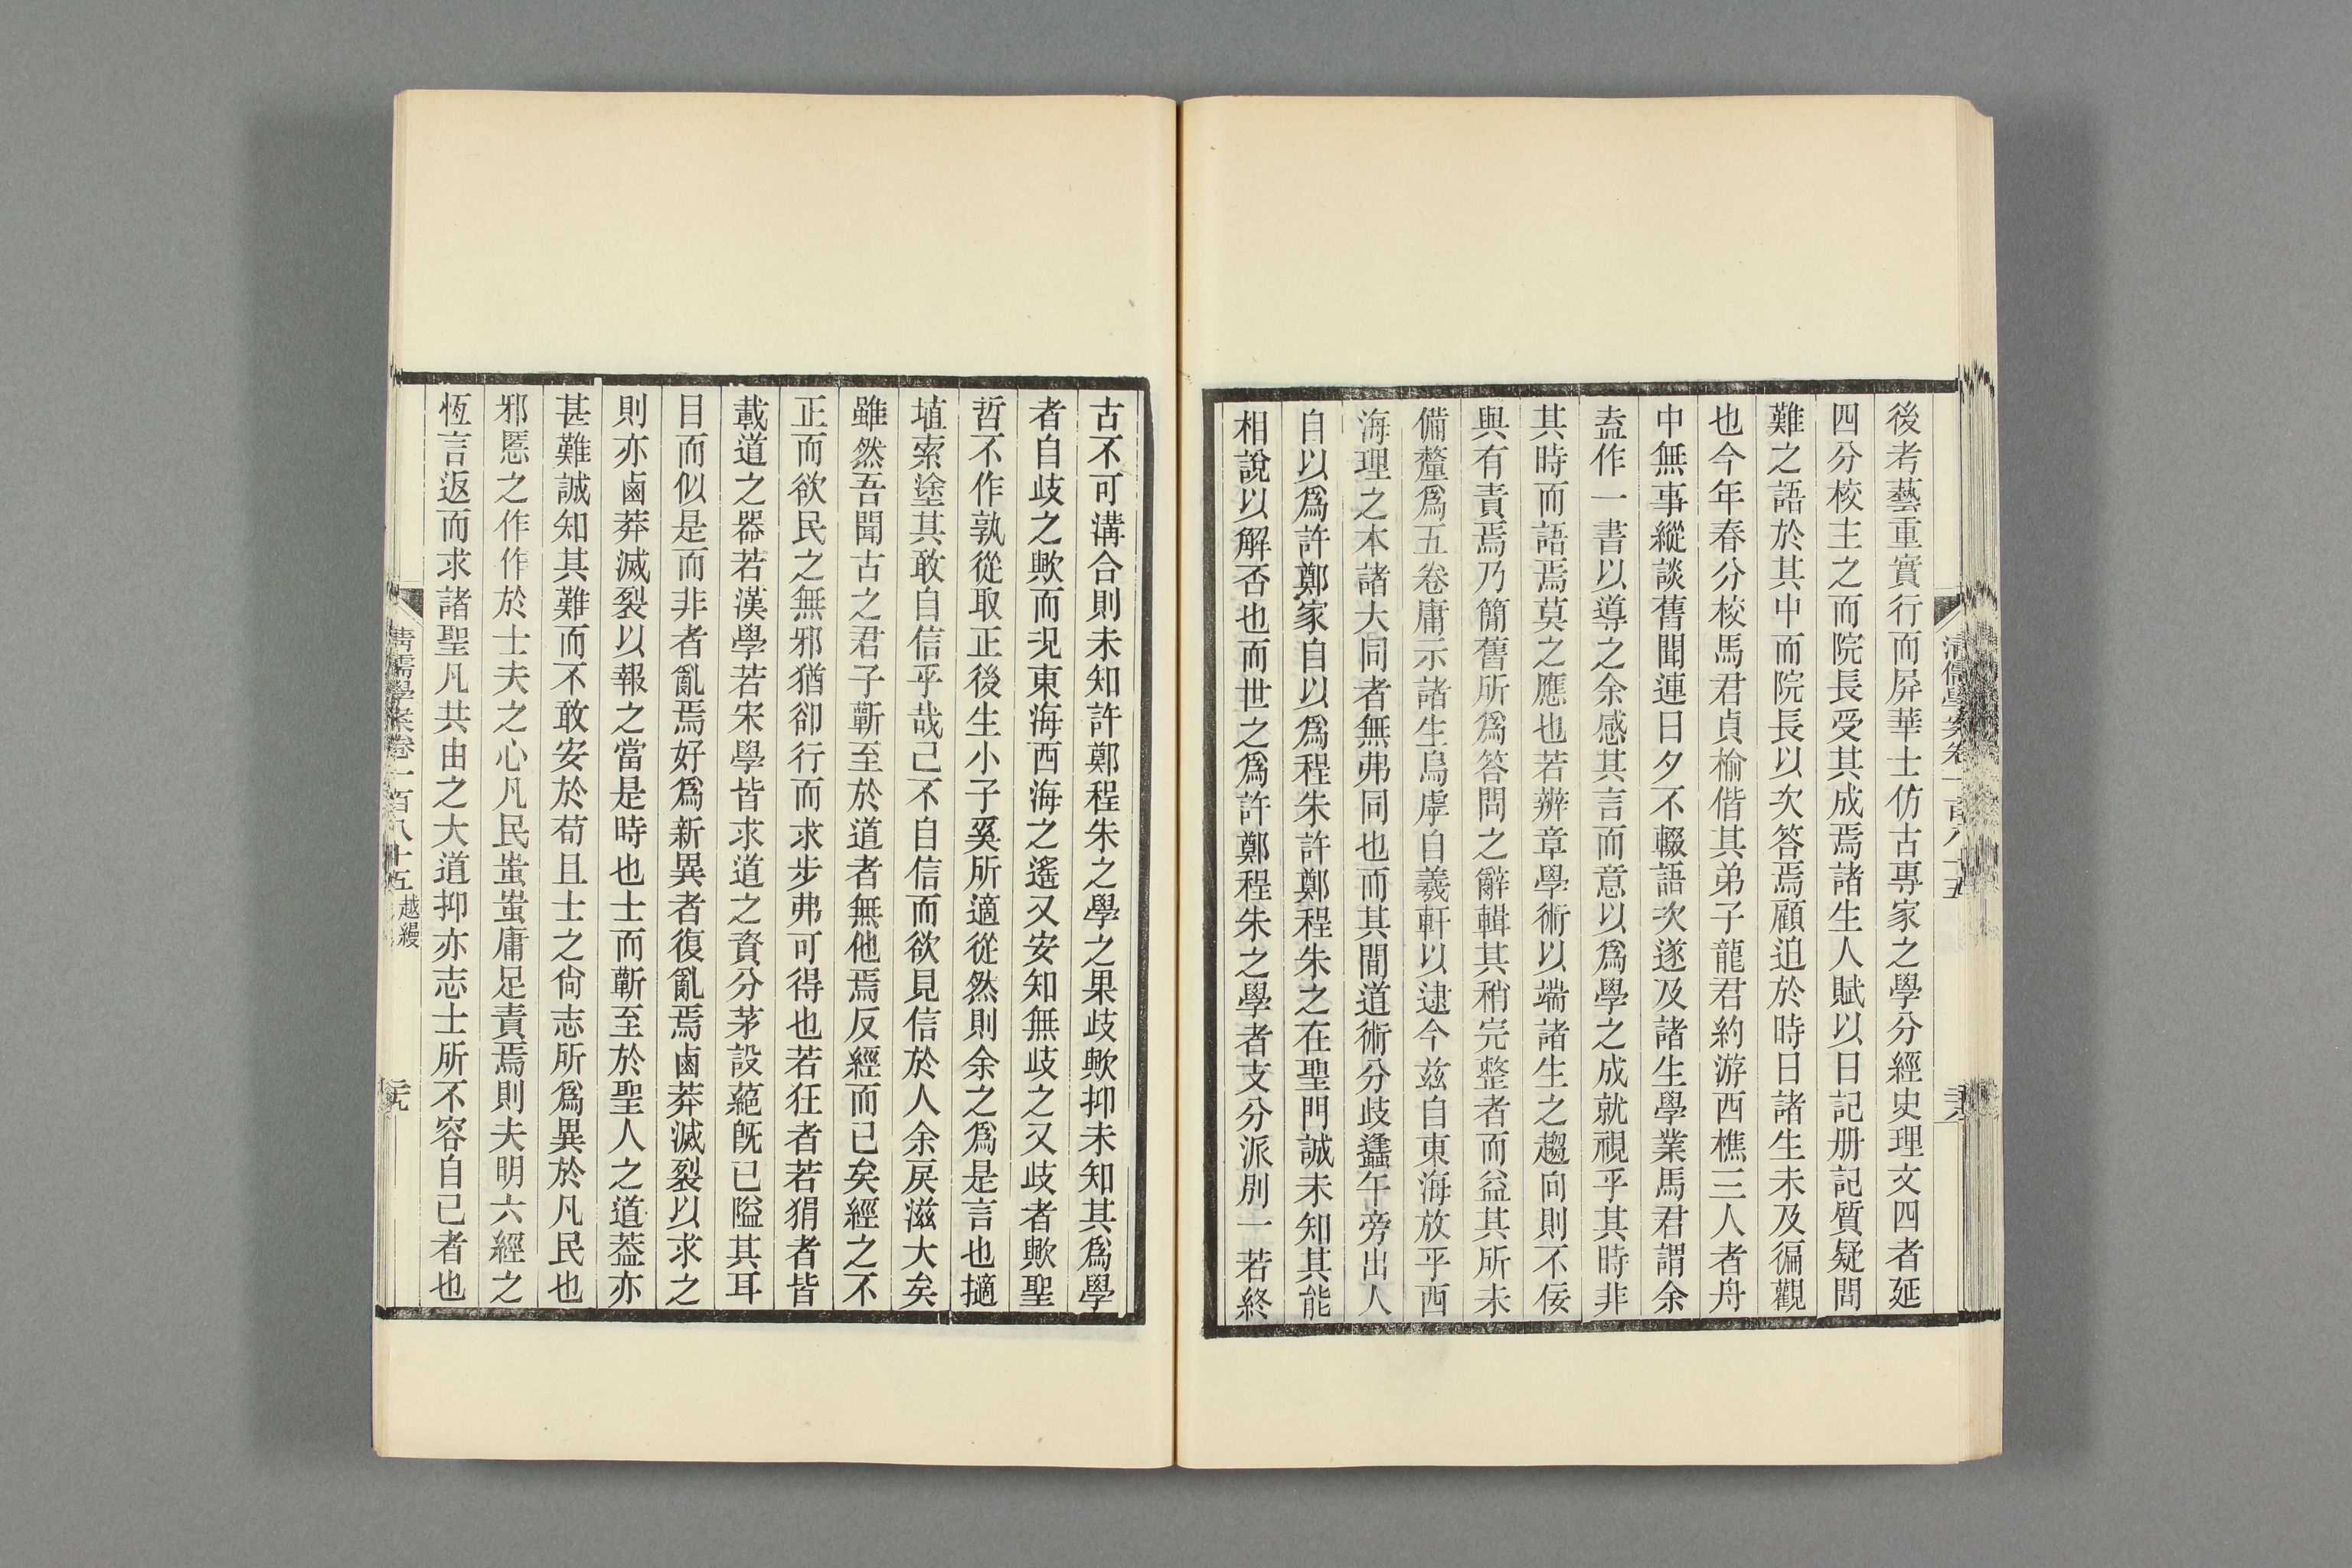 後考藝重實行而屏華士仿古專家之學分經史理文四者延
四分校主之而院長受其成焉諸生人賦以日記册記質疑問
難之語於其中而院長以次答焉顧迫於時日諸生未及徧觀
也今年春分校馬君貞榆偕其弟子龍君約游西樵三人者舟
中無事縱談舊聞連日夕不輟語次遂及諸生學業馬君謂余
盍作一書以導之余感其言而意以爲學之成就視乎其時非
其時而語焉莫之應也若辨章學術以端諸生之趨向則不佞
與有責焉乃簡舊所爲答問之辭輯其稍完整者而益其所未
備釐爲五卷庸示諸生烏虖自羲軒以逮今兹自東海放乎西
海理之本諸大同者無弗同也而其閒道術分歧蠭午旁出人
自以爲許鄭家自以爲程朱許鄭程朱之在聖門誠未知其能
相說以解否也而世之爲許鄭程朱之學者支分派別一若終
清儒學案卷一百八十五
古不可溝合則未知許鄭程朱之學之果歧歟抑未知其爲學
者自歧之歟而況東海西海之遙又安知無歧之又歧者歟聖
哲不作孰從取正後生小子奚所適從然則余之爲是言也擿
埴索塗其敢自信乎哉己不自信而欲見信於人余戾滋大矣
雖然吾聞古之君子蘄至於道者無他焉反經而已矣經之不
正而欲民之無邪猶卻行而求步弗可得也若狂者若狷者皆
載道之器若漢學若宋學皆求道之資分茅設蕝旣已隘其耳
目而似是而非者亂焉好爲新異者復亂焉鹵莽滅裂以求之
則亦鹵莽滅裂以報之當是時也士而蘄至於聖人之道葢亦
甚難誠知其難而不敢安於苟且士之尙志所爲異於凡民也
邪慝之作作於士夫之心凡民蚩蚩庸足責焉則夫明六經之
恆言返而求諸聖凡共由之大道抑亦志士所不容自已者也
清儒學案卷一百八十五 越縵